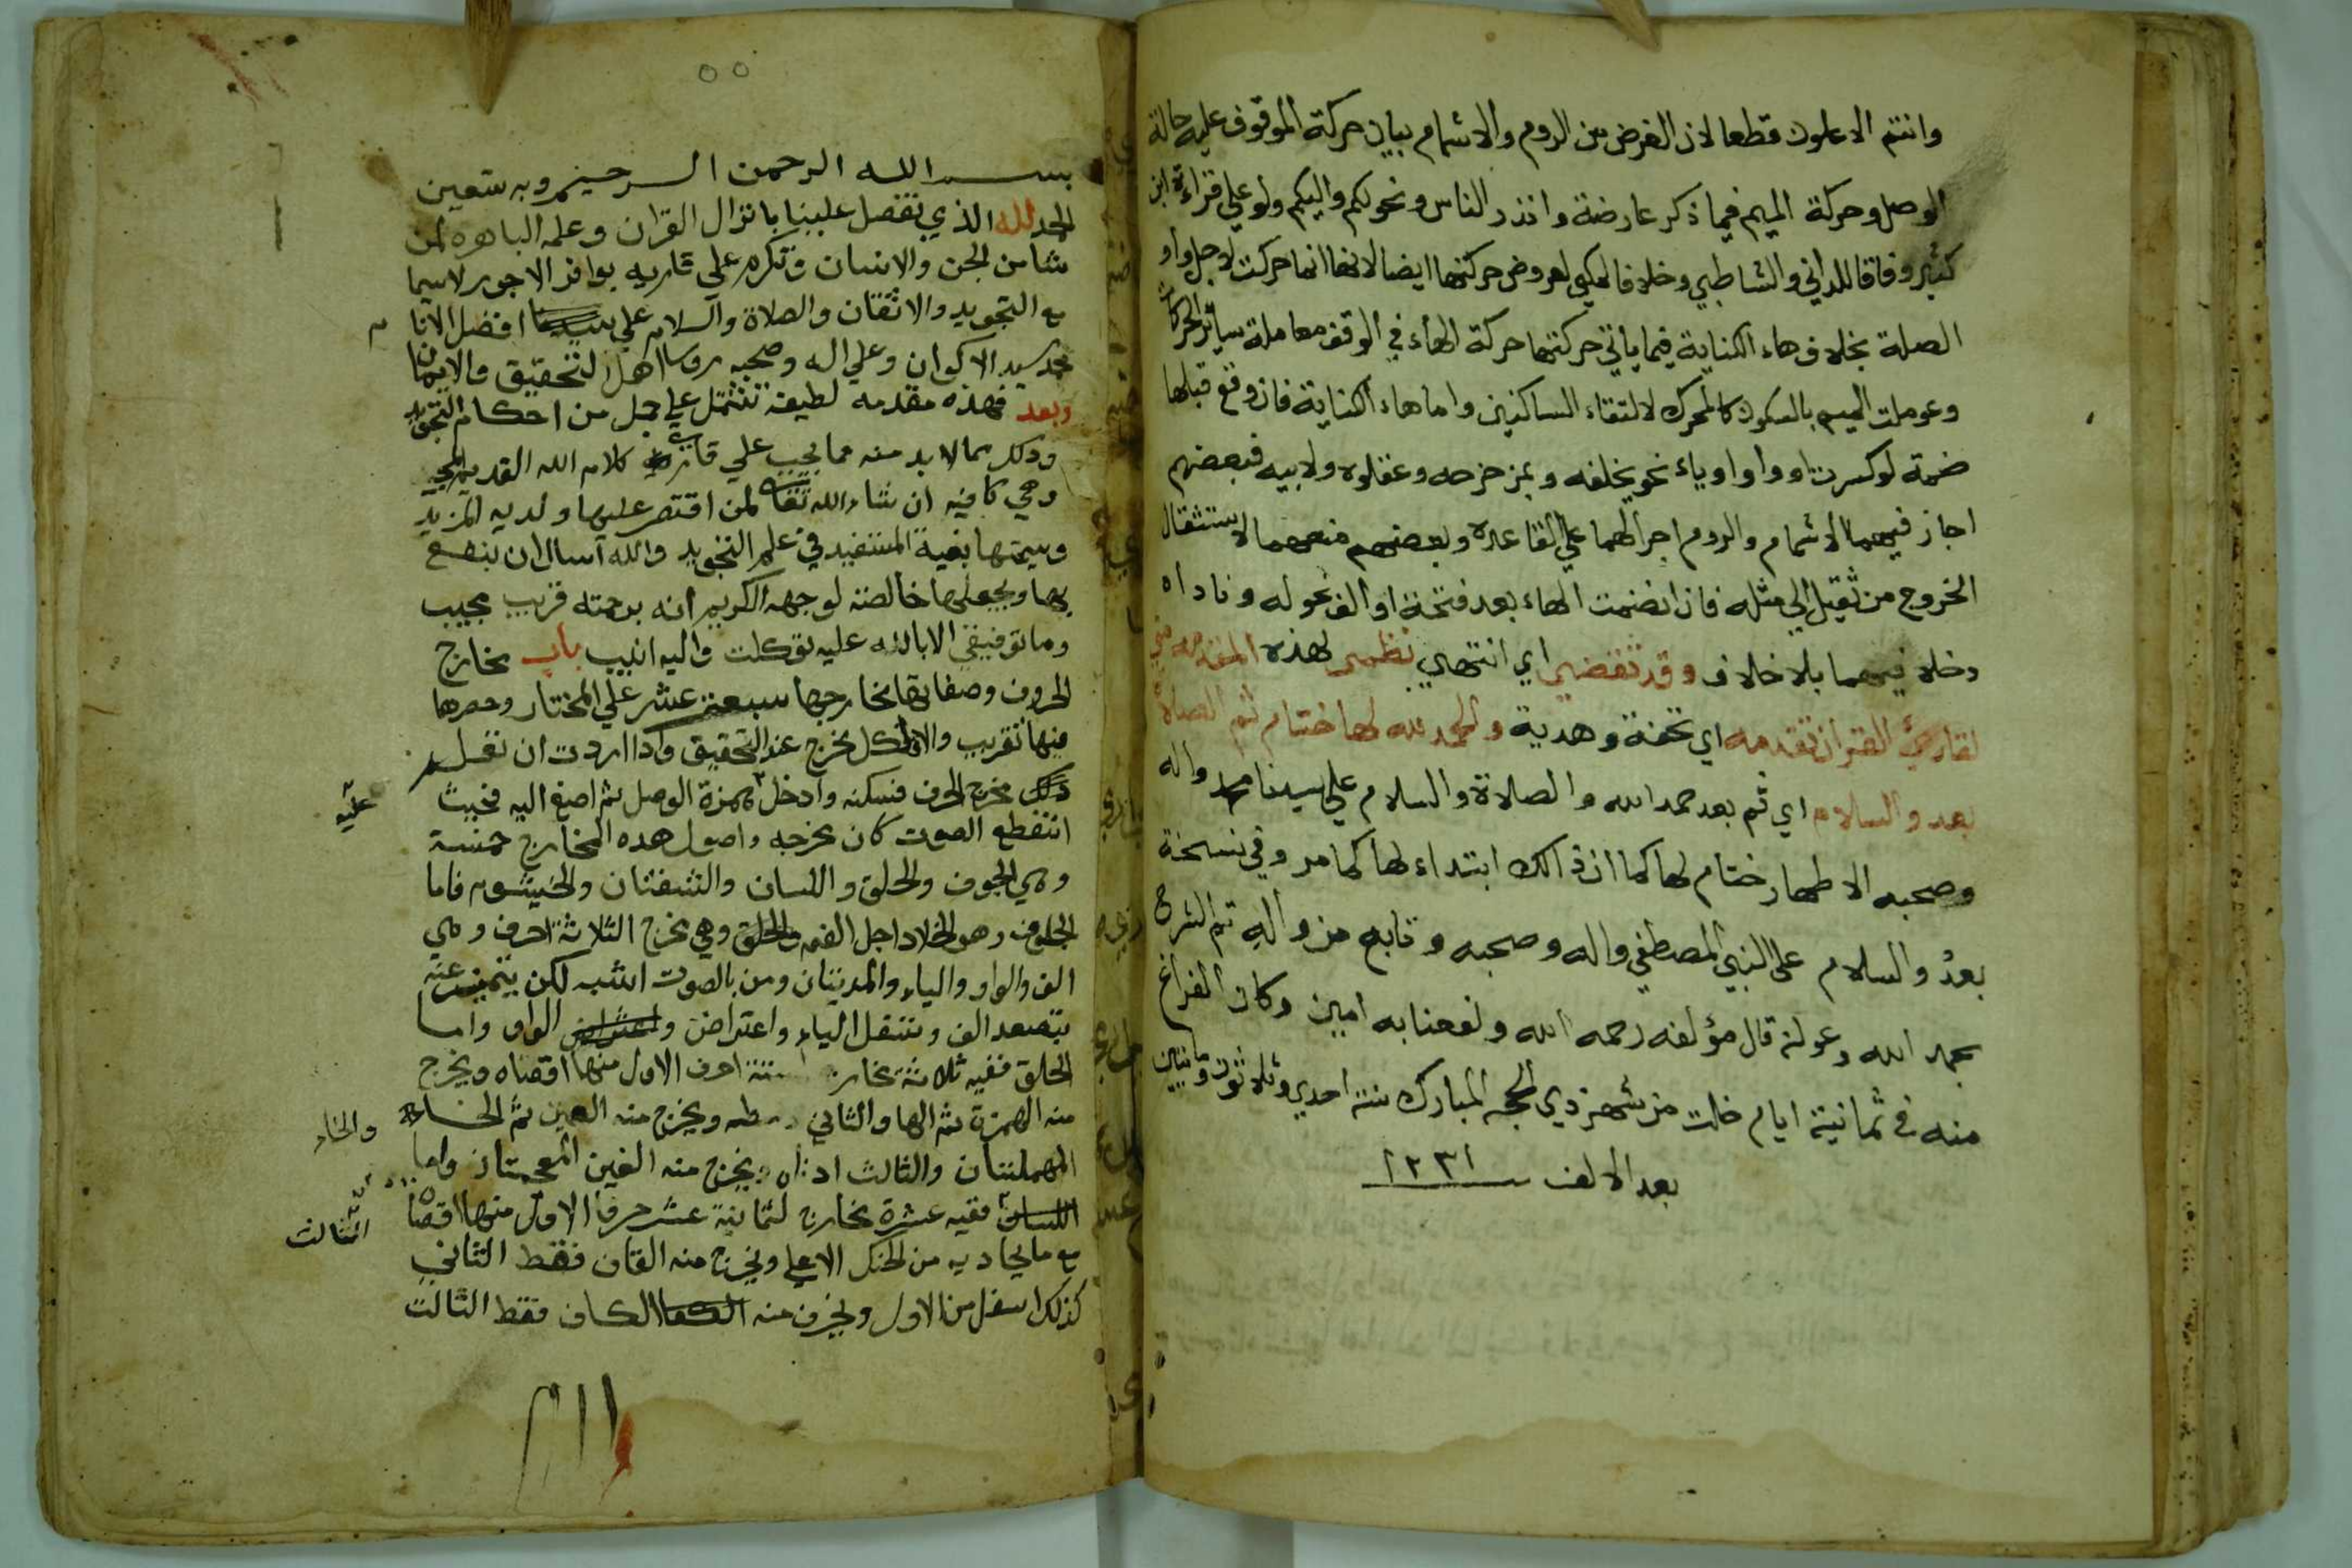 وانتم الاعلون قطعا لان الغرض من الروم والاشمام بيان حركة الموقوف عليه حالة
الوصل وحركة الميم فيما ذكر عارضة وانذر الناس ونحو لكم واليكم ولو علي قراءة ابن
كثير وفاقا للداني والشاطبي وخلافا لمكي لعروض حركتها ايضا لانها انما حركت لاجل واو
الصلة بخلاف هاء الكناية فيما ياتي حركتهما حركة الهاء في الوقف معاملة سائر الحركات
وعوملت الميم بالسكون كالمحرك لالتقاء الساكنين واما هاء الكناية فان وقع قبلها
ضمة او كسرت او واو او ياء نحو يخلفه وبمزحزحه وعقلوه ولابيه فبعضهم
اجاز فيهما الاشمام والروم اجرالهما علي القاعدة وبعضهم منعهما لاستثقال
الخروج من ثقيل الي مثله فان انضمت الهاء بعد فتحة او الف نحو له وناداه
دخلا فيهما بلا خلاف وقد تقضي اي انتهاي نظمي لهذه المقدمه مني
لقارئ القران تقدمه اي تحفة وهدية والحمد لله لها ختام ثم الصلاة
بعد والسلام اي ثم بعد حمد الله والصلاة والسلام علي سيدنا محمد واله
وصحبه الاطهار ختام لها كما ان ذالك ابتداء لها كما مر وفي نسخة
بعد والسلام على النبي المصطفي واله وصحبه وتابع من واليه تم الشرح
بحمد الله وعونه قال مؤلفه رحمه الله ونفعنا به امين وكان الفراغ
منه في ثمانية ايام خلت من شهر ذي الحجه المبارك سنة احدي وثلاثون وماتيين
بعد الالف سنه ١٢٣١
٥٥
بسم الله الرحمن الرحيم وبه ستعين
الحمد لله الذي تفضل علينا بانزال القران وعلمه الباهره لمن
شا من الجن والانسان وتكرم علي قاريه بوافر الاجور لاسيما
مع التجويد والاتقان والصلاة والسلام علي سيدنا افضل الانا
م
محمد سيد الاكوان وعلي اله وصحبه روسا اهل التحقيق والايمان
وبعد فهذه مقدمه لطيفه تشتمل علي جمل من احكام التجويد
وذلك مما لابد منه مما يجب علي قاري كلام الله القديم المجيد
وهي كافيه ان شاء الله تعا لمن اقتصر عليها ولديه المزيد
وسيمتها بغية المستفيد في علم التجويد والله اسال ان ينفع
بها ويجعلها خالصة لوجهه الكريم انه برحمته قريب مجيب
وما توفيقي الا بالله عليه توكلت واليه انيب باب مخارج
الحروف وصفاتها مخارجها سبعة عشر علي المختار وحصرها
فيها تقريب والا فلكل مخرج عند التحقيق واذا اردت ان تعلم
ذلك مخرج الحرف فسكنه وادخل همزة الوصل ثم اصغ اليه فحيث
عليه
انقطع الصوت كان مخرجه واصول هذه المخارج خمسة
وهي الجوف والحلق واللسان والشفتان والخيشوم فاما
الجوف وهو الخلا داخل الفم والحلق وهي مخرج الثلاثة احرف وهي
الف والواو والياء والمديتان ومن بالصوت اشبه لكن يتميز عنه
بتصعد الف وتسفل الياء واعتراض الواو واما
الحلق ففيه ثلاثة مخارج ستة احرف الاول منها اقصاه ويخرج
منه الهمزة ثم الها والثاني وسطه ويخرج منه العين ثم الحاء
والخاء
المهملتان والثالث ادناه ويخرج منه الغين المعجمتان واما
اللسان ففيه عشرة مخارج لثمانية عشر حرفا الاول منها اقصا
الثالث
مع ما يحاديه من الحنك الاعلي ويخرج منه القاف فقط الثاني
كذلك اسفل من الاول ويخرج منه الكاف فقط الثالث